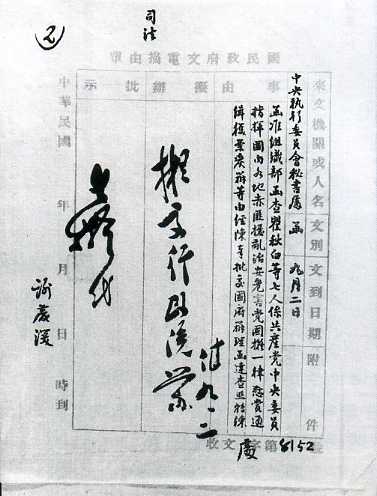 ②
司法
單由摘電文府政民國
來文機關或人名
文別
文到日期
附件
中央執行委員會秘書處
函
九月二日
事由
函准組織部函查瞿秋白等七人係共產黨中央委員
指揮國內各地赤匪擾亂治安危害黨國擬一律懸賞通
緝獲案究辦等由經陳奉批交國府辦理函達查照轉陳
擬辦
擬交行政院
九、二
批示
中華民國 年 月 日 時到
謝慶溪
收文 字第 8152